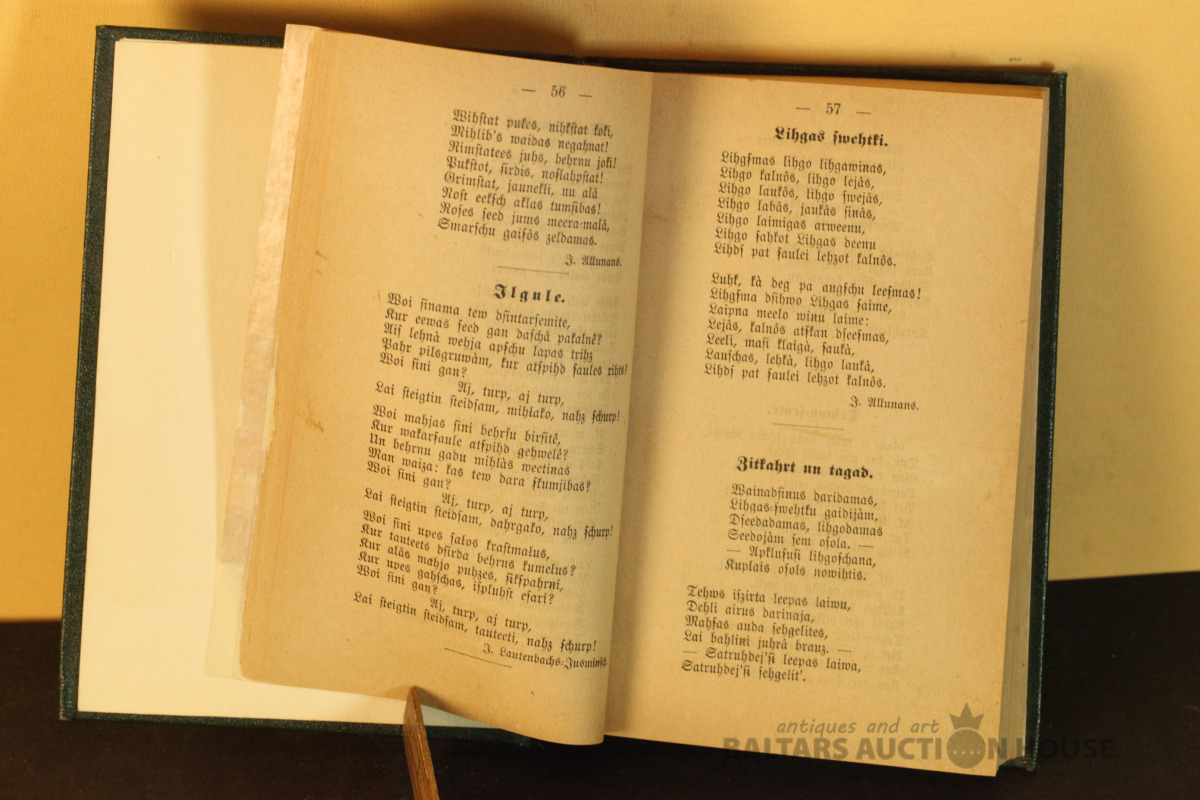 — 56 —
Wihſtat pukes, nihkſtat koki,
Mihlib's waidas negahnat!
Rimſtatees juhs, behrnu joki!
Pukſtot, ſirdis, noſlahpſtat!
Grimſtat, jaunekli, nu alâ
Noſt eekſch aklas tumſibas!
Roſes ſeed jums meera-malâ,
Smarſchu gaiſôs zeldamas.
J. Allunans.
Ilgule.
Woi ſinama tew dſintarſemite,
Kur eewas ſeed gan daſchâ pakalnê?
Aiſ lehnà wehja apſchu lapas trihz
Pahr pilsgruwàm, kur atſpihd ſaules rihts?
Woi ſini gan?
Aj, turp, aj turp,
Lai ſteigtin ſteidſam, mihtako, nahz ſchurp!
Woi mahjas ſini behrſu birſitê,
Kur wakarſaule atſpihd gehwelê?
Un behrnu gadu mihlàs weetinas
Man waiza: kas tew dara ſkumjibas?
Woi ſini gan?
Aj, turp, aj turp,
Lai ſteigtin ſteidſam, dahrgako, nahz ſchurp!
Woi ſini upes ſalos kraſtmalus,
Kur tauteets dſirda behrus kumelus?
Kur alâs mahjo puhzes, ſikſpahrni,
Kur upes gahſchas, iſpluhſt eſari?
Woi ſini gan?
Aj, turp, aj turp,
Lai ſteigtin ſteidſam, tauteeti, nahz ſchurp!
J. Lautenbachs-Jusminſch
— 57 —
Lihgas ſwehtki.
Lihgſmas lihgo lihgawinas,
Lihgo kalnôs, lihgo lejâs,
Lihgo laukôs, lihgo ſwejâs,
Lihgo labâs, jaukâs ſinâs,
Lihgo laimigas arweenu,
Lihgo ſahkot Lihgas deenu
Lihdſ pat ſaulei lehzot kalnôs.
Luhk, kà deg pa augſchu leeſmas!
Lihgſma dſihwo Lihgas ſaime,
Laipna meelo winu laime:
Lejâs, kalnôs atſkan dſeeſmas,
Leeli, maſi klaigà, ſaukà,
Lauſchas, lehkà, lihgo laukâ,
Lihdſ pat ſaulei lehzot kalnôs.
J. Allunans.
Zitkahrt un tagad.
Wainadſinus daridamas,
Lihgas-ſwehtku gaidijàm,
Dſeedadamas, lihgodamas
Seedojàm ſem oſola. —
— Apkluſuſi lihgoſchana,
Kuplais oſols nowihtis.
Tehws iſzirta leepas laiwu,
Dehli airus darinaja,
Mahſas auda ſehgelites,
Lai bahlini juhrâ brauz. —
— Satruhdej'ſi leepas laiwa,
Satruhdej'ſi ſehgelit'.
antiques and art
BALTARS AUCTION HOUSE